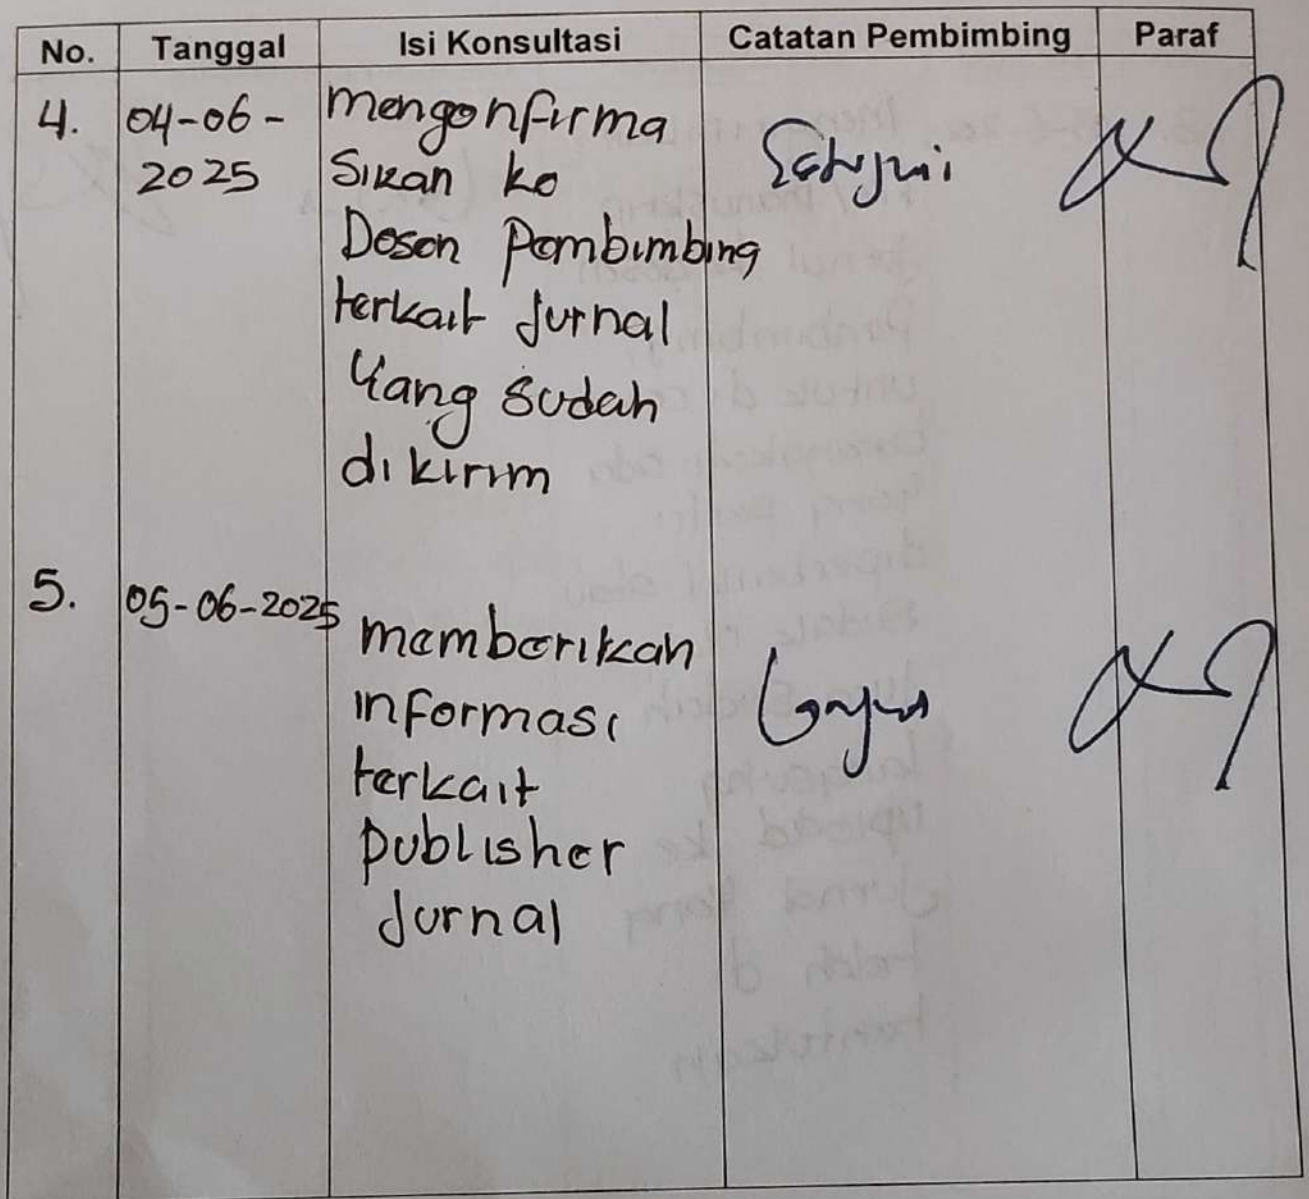 No. Tanggal Isi Konsultasi Catatan Pembimbing Paraf
4. 04-06-2025
mengonfirma
sikan ke
Dosen Pembimbing
terkait Jurnal
Yang sudah
dikirim
Setujui
5. 05-06-2025
memberikan
informasi
terkait
publisher
Jurnal